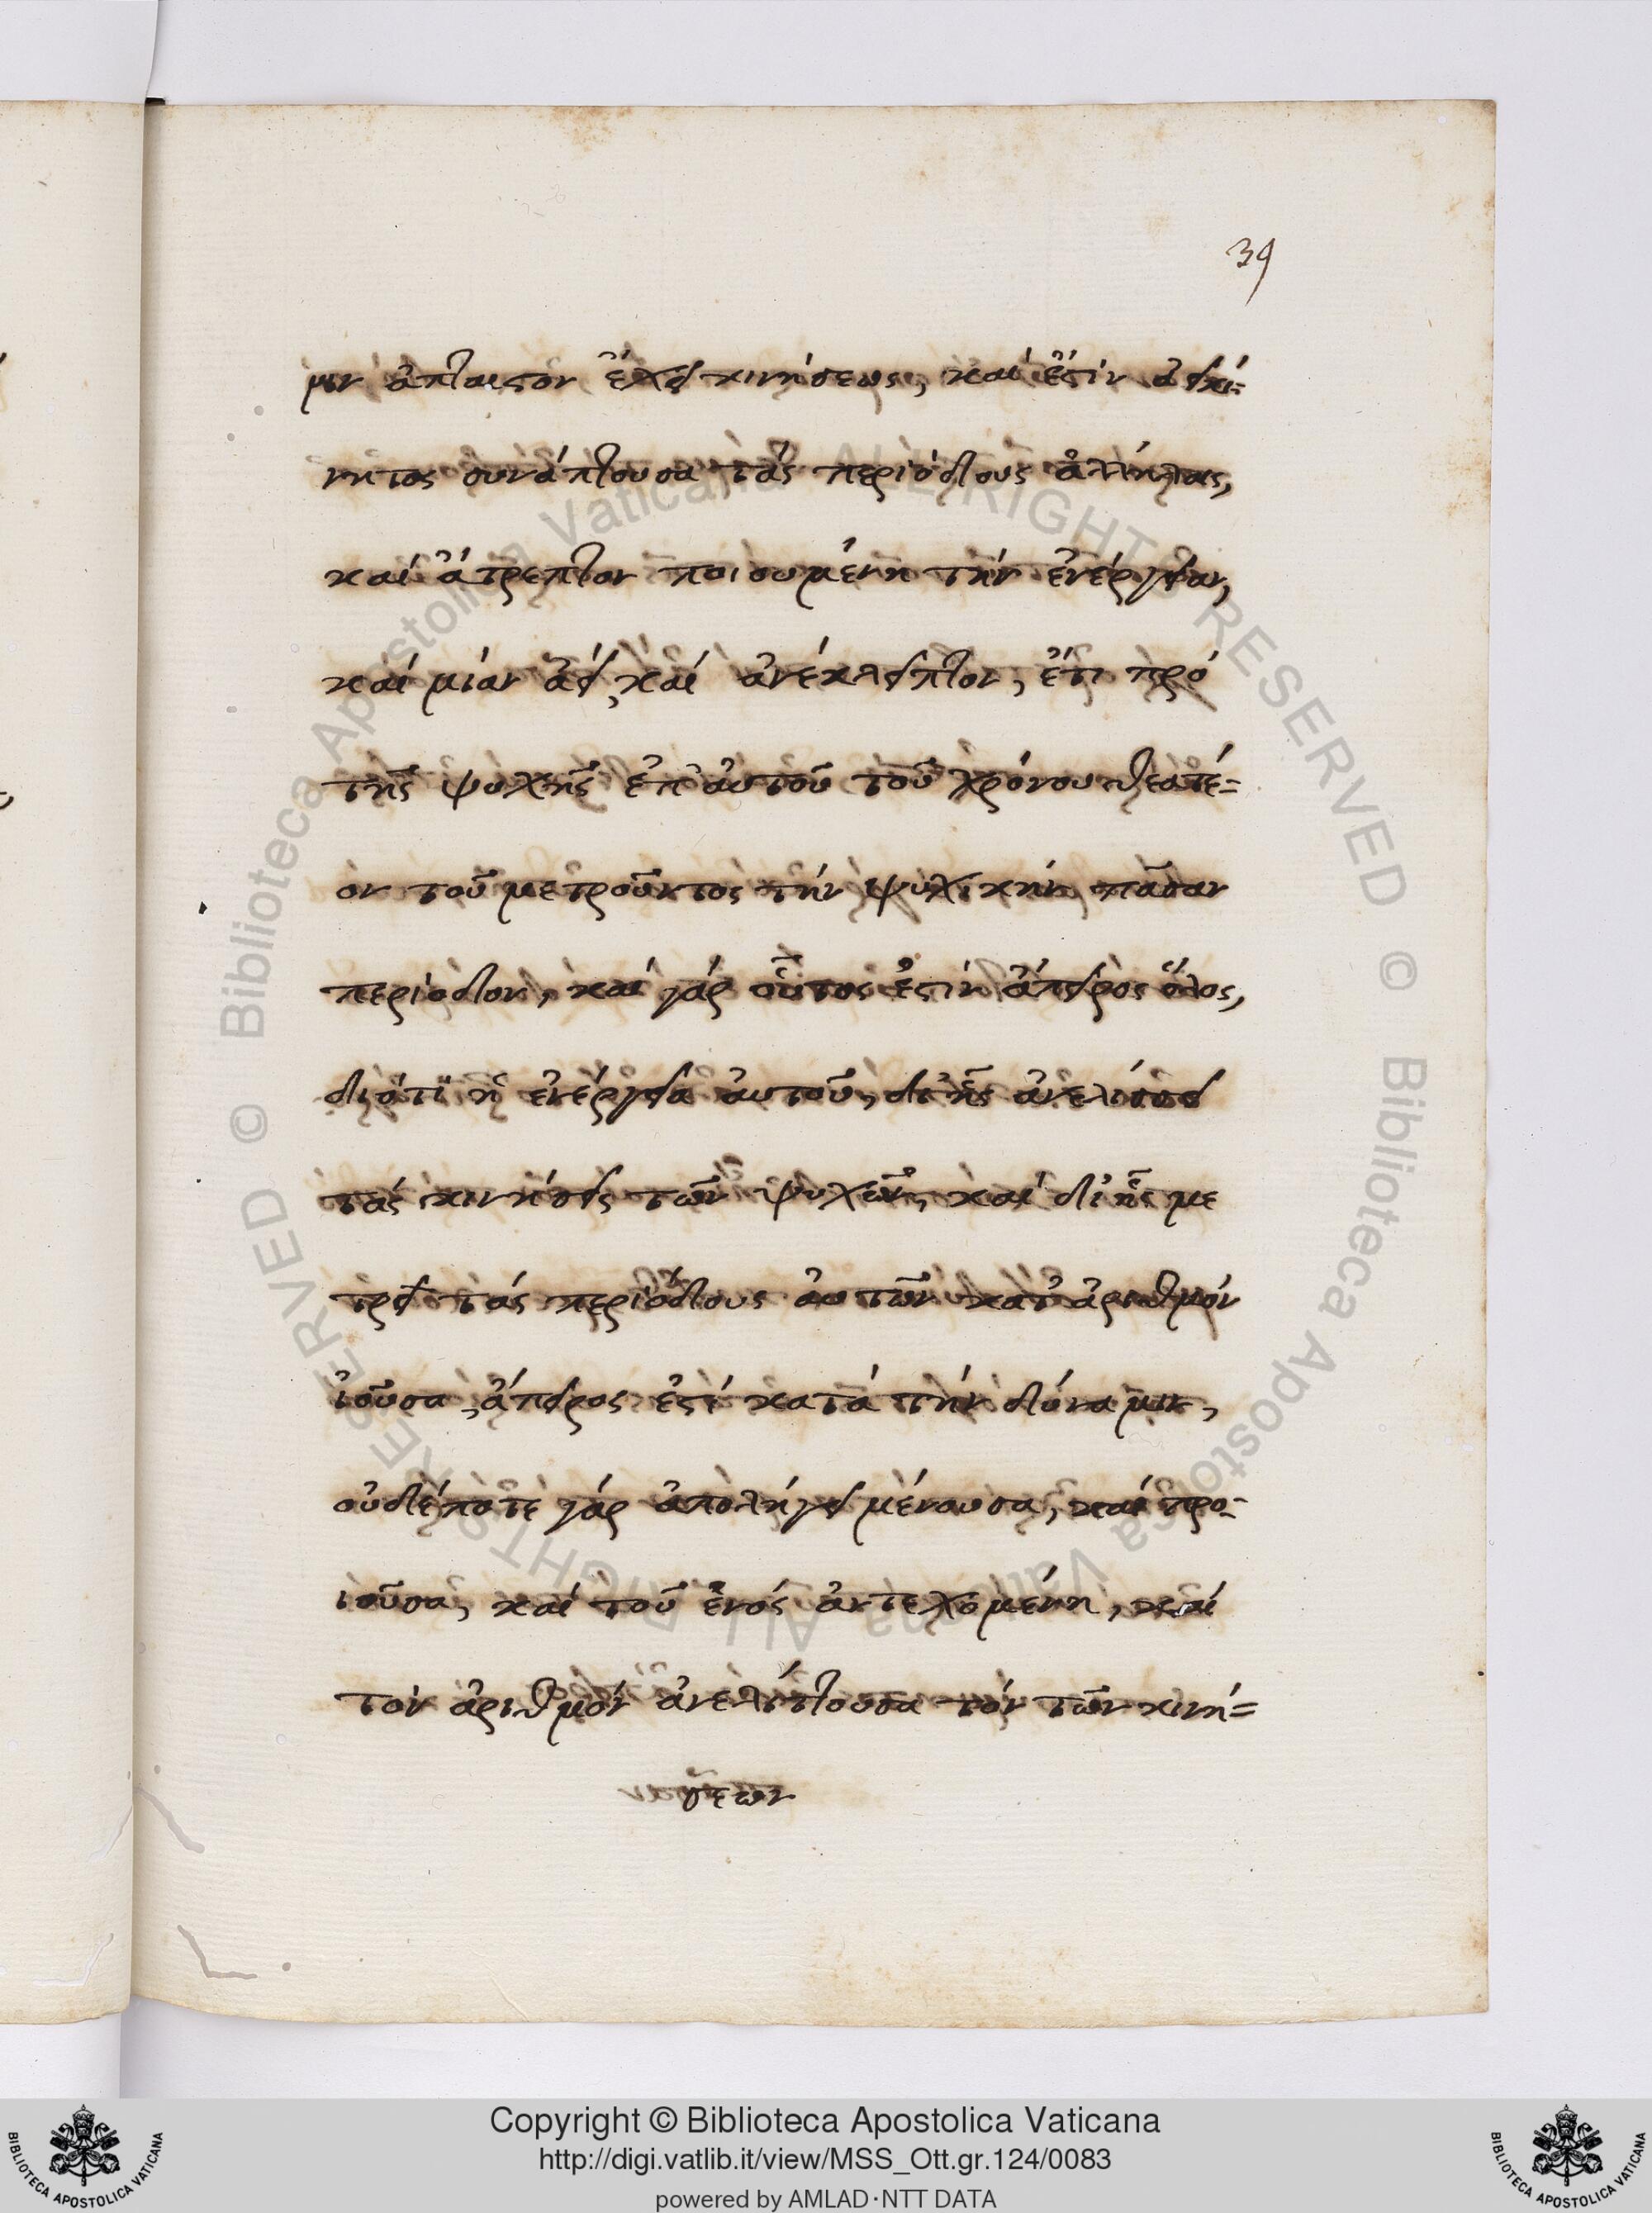 39
μιν ἄπλαιστον ἔχει κινήσεως, καὶ ἔστιν ἀεικί=
νητος συνάπτουσα τὰς περιόδους ἀλλήλαις,
καὶ ἄτρεπτον ποιουμένη τὴν ἐνέργειαν,
καὶ μίαν ἀεί, καὶ ἀνέκλειπτον, ἔτι πρὸ
τῆς ψυχῆς ἐπ' αὐτοῦ τοῦ χρόνου θεατέ=
ον τοῦ μετροῦντος τὴν ψυχικὴν πᾶσαν
περίοδον, καὶ γὰρ οὗτος ἐστὶν ἄπειρος ὅλος,
διότι ἡ ἐνέργεια αὐτοῦ, δι' ἧς ἀνελίσσει
τὰς κινήσεις τῶν ψυχῶν, καὶ δι' ἧς με
τρεῖ τὰς περιόδους αὐτῶν κατ' ἀριθμὸν
ἰοῦσα, ἄπειρος ἐστὶ κατὰ τὴν δύναμιν,
οὐδέποτε γὰρ ἀπολήγει μένουσα, καὶ προ-
ιοῦσα, καὶ τοῦ ἑνὸς ἀντεχομένη, καὶ
τὸν ἀριθμὸν ἀνελίττουσα τὸν τῶν κινή=
σεων
Copyright © Biblioteca Apostolica Vaticana
http://digi.vatlib.it/view/MSS_Ott.gr.124/0083
powered by AMLAD·NTT DATA
BIBLIOTECA APOSTOLICA VATICANA
BIBLIOTECA APOSTOLICA VATICANA
© Biblioteca Apostolica Vaticana ALL RIGHTS RESERVED
© Biblioteca Apostolica Vaticana ALL RIGHTS RESERVED